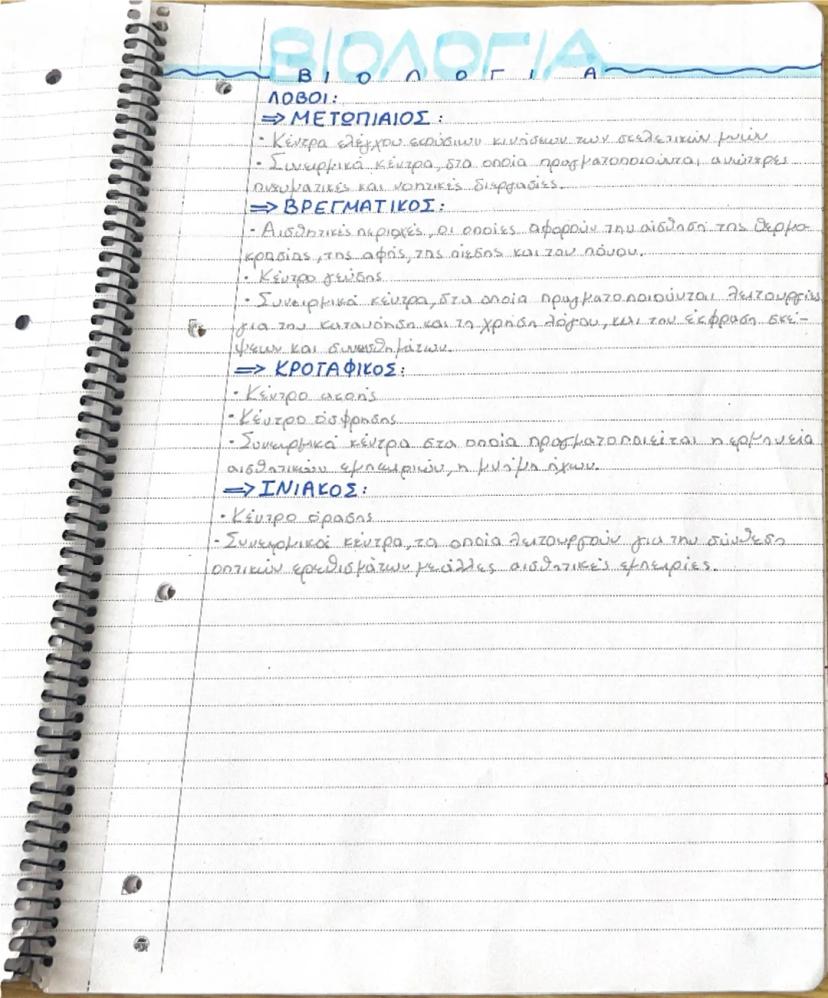 ΒΙΟΛΟΓΙΑ
ΒΙΟΛΟΓΙΑ
ΛΟΒΟΙ:
⇒ ΜΕΤΩΠΙΑΙΟΣ:
· Κέντρα ελέγχου εκούσιων κινήσεων των σκελετικών μυών
· Συνειρμικά κέντρα, στα οποία πραγματοποιούνται ανώτερες
πνευματικές και νοητικές διεργασίες.
⇒ ΒΡΕΓΜΑΤΙΚΟΣ:
· Αισθητικές περιοχές, οι οποίες αφορούν την αίσθηση της θερμο-
κρασίας, της αφής, της πίεσης και του πόνου.
· Κέντρο γεύσης
· Συνειρμικά κέντρα, στα οποία πραγματοποιούνται λειτουργίες
για την κατανόηση και τη χρήση λόγου, και την έκφραση σκέ-
ψεων και συναισθημάτων.
⇒ ΚΡΟΤΑΦΙΚΟΣ:
· Κέντρο ακοής
· Κέντρο όσφρησης
· Συνειρμικά κέντρα στα οποία πραγματοποιείται η ερμηνεία
αισθητικών εμπειριών, η μνήμη ήχων.
⇒ ΙΝΙΑΚΟΣ:
· Κέντρο όρασης
· Συνειρμικά κέντρα, τα οποία λειτουργούν για την σύνθεση
οπτικών ερεθισμάτων με άλλες αισθητικές εμπειρίες.